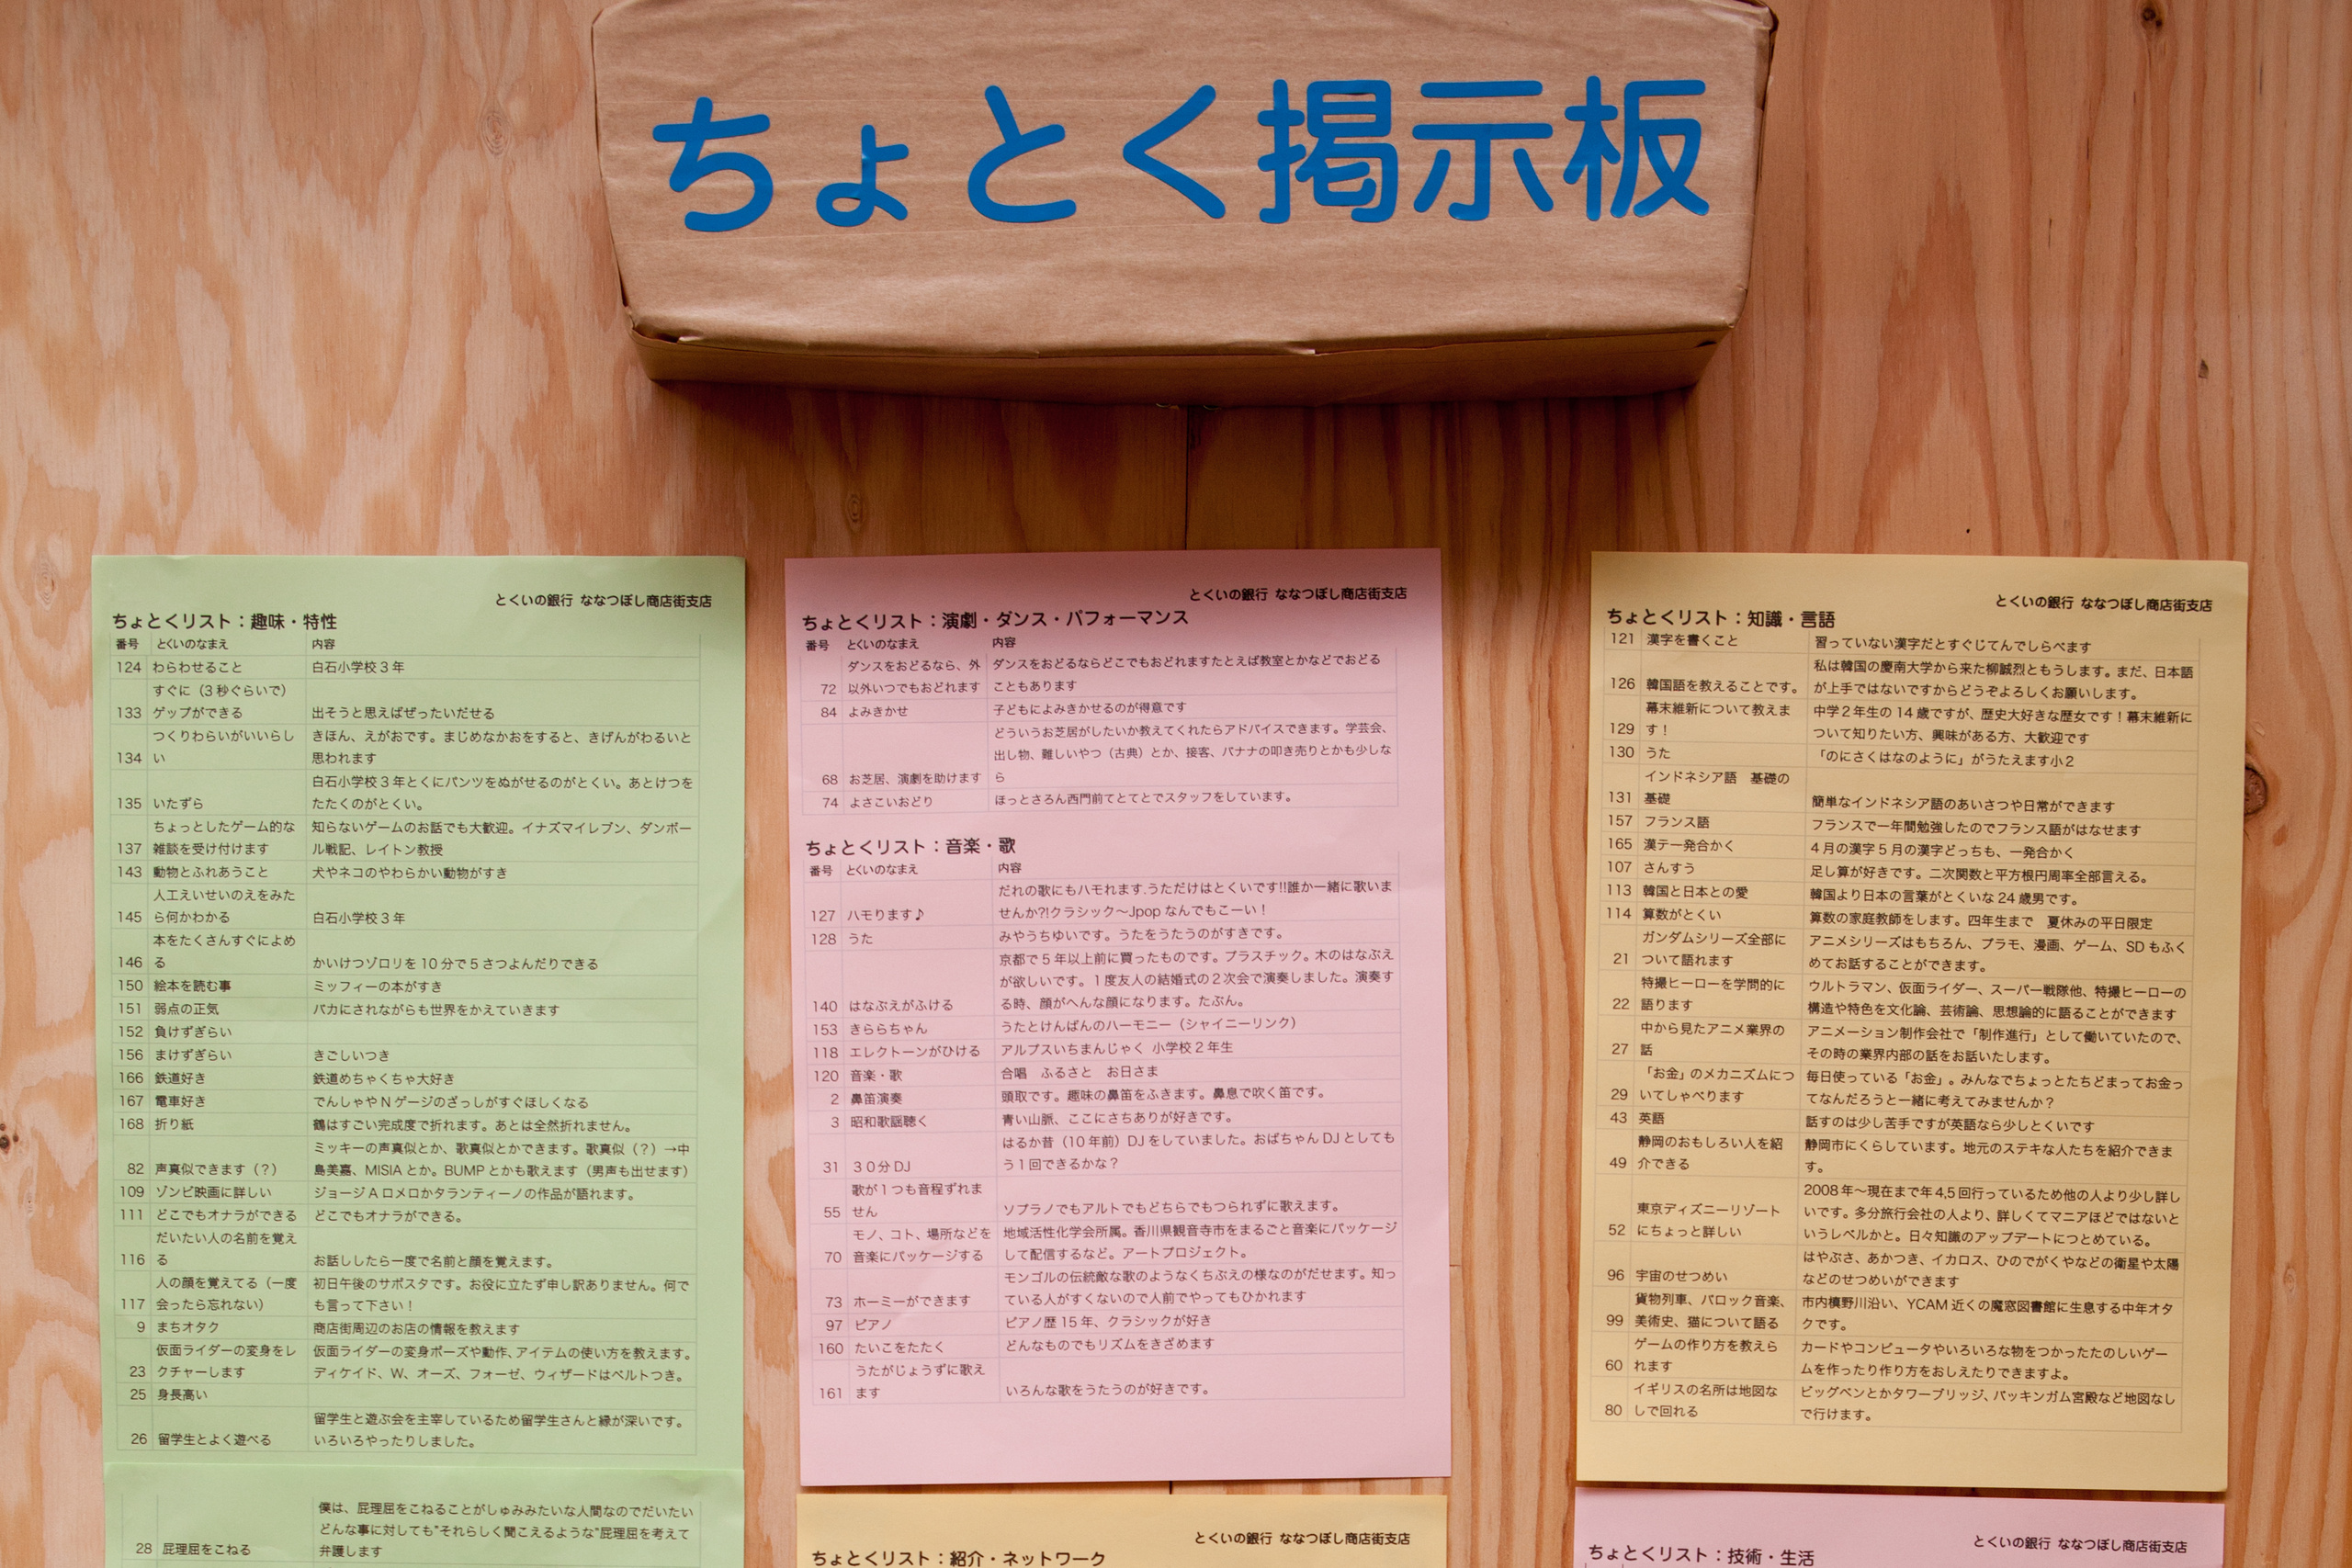 ちょとく掲示板
とくいの銀行 ななつぼし商店街支店
ちょとくリスト：趣味・特性
番号 とくいのなまえ 内容
124 わらわせること 白石小学校３年
すぐに（３秒ぐらいで）
133 ゲップができる 出そうと思えばぜったいだせる
つくりわらいがいいらし きほん、えがおです。まじめなかおをすると、きげんがわるいと
134 い 思われます
白石小学校３年とくにパンツをぬがせるのがとくい。あとけつを
135 いたずら たたくのがとくい。
ちょっとしたゲーム的な 知らないゲームのお話でも大歓迎。イナズマイレブン、ダンボー
137 雑談を受け付けます ル戦記、レイトン教授
143 動物とふれあうこと 犬やネコのやわらかい動物がすき
人工えいせいのえをみた
145 ら何かわかる 白石小学校３年
本をたくさんすぐによめ
146 る かいけつゾロリを 10 分で５さつよんだりできる
150 絵本を読む事 ミッフィーの本がすき
151 弱点の正気 バカにされながらも世界をかえていきます
152 負けずぎらい
156 まけずぎらい きごしいつき
166 鉄道好き 鉄道めちゃくちゃ大好き
167 電車好き でんしゃや N ゲージのざっしがすぐほしくなる
168 折り紙 鶴はすごい完成度で折れます。あとは全然折れません。
ミッキーの声真似とか、歌真似とかできます。歌真似（？）→中
82 声真似できます（？） 島美嘉、MISIA とか。BUMP とかも歌えます（男声も出せます）
109 ゾンビ映画に詳しい ジョージ A ロメロかタランティーノの作品が語れます。
111 どこでもオナラができる どこでもオナラができる。
だいたい人の名前を覚え
116 る お話ししたら一度で名前と顔を覚えます。
人の顔を覚えてる（一度 初日午後のサポスタです。お役に立たず申し訳ありません。何で
117 会ったら忘れない） も言って下さい！
9 まちオタク 商店街周辺のお店の情報を教えます
仮面ライダーの変身をレ 仮面ライダーの変身ポーズや動作、アイテムの使い方を教えます。
23 クチャーします ディケイド、W、オーズ、フォーゼ、ウィザードはベルトつき。
25 身長高い
留学生と遊ぶ会を主宰しているため留学生さんと縁が深いです。
26 留学生とよく遊べる いろいろやったりしました。
僕は、屁理屈をこねることがしゅみみたいな人間なのでだいたい
どんな事に対しても"それらしく聞こえるような"屁理屈を考えて
28 屁理屈をこねる 弁護します
とくいの銀行 ななつぼし商店街支店
ちょとくリスト：演劇・ダンス・パフォーマンス
番号 とくいのなまえ 内容
ダンスをおどるなら、外 ダンスをおどるならどこでもおどれますたとえば教室とかなどでおどる
72 以外いつでもおどれます こともあります
84 よみきかせ 子どもによみきかせるのが得意です
どういうお芝居がしたいか教えてくれたらアドバイスできます。学芸会、
出し物、難しいやつ（古典）とか、接客、バナナの叩き売りとかも少しな
68 お芝居、演劇を助けます ら
74 よさこいおどり ほっとさろん西門前てとてとでスタッフをしています。
ちょとくリスト：音楽・歌
番号 とくいのなまえ 内容
だれの歌にもハモれます.うただけはとくいです!!誰か一緒に歌いま
127 ハモります♪ せんか?!クラシック〜Jpop なんでもこーい！
128 うた みやうちゆいです。うたをうたうのがすきです。
京都で５年以上前に買ったものです。プラスチック。木のはなぶえ
が欲しいです。１度友人の結婚式の２次会で演奏しました。演奏す
140 はなぶえがふける る時、顔がへんな顔になります。たぶん。
153 きららちゃん うたとけんばんのハーモニー（シャイニーリンク）
118 エレクトーンがひける アルプスいちまんじゃく 小学校２年生
120 音楽・歌 合唱　ふるさと　お日さま
2 鼻笛演奏 頭取です。趣味の鼻笛をふきます。鼻息で吹く笛です。
3 昭和歌謡聴く 青い山脈、ここにさちありが好きです。
はるか昔（10 年前）DJ をしていました。おばちゃん DJ としても
31 ３０分 DJ う１回できるかな？
歌が１つも音程ずれま
55 せん ソプラノでもアルトでもどちらでもつられずに歌えます。
モノ、コト、場所などを 地域活性化学会所属。香川県観音寺市をまるごと音楽にパッケージ
70 音楽にパッケージする して配信するなど。アートプロジェクト。
モンゴルの伝統敵な歌のようなくちぶえの様なのがだせます。知っ
73 ホーミーができます ている人がすくないので人前でやってもひかれます
97 ピアノ ピアノ歴 15 年、クラシックが好き
160 たいこをたたく どんなものでもリズムをきざめます
うたがじょうずに歌え
161 ます いろんな歌をうたうのが好きです。
とくいの銀行 ななつぼし商店街支店
ちょとくリスト：紹介・ネットワーク
とくいの銀行 ななつぼし商店街支店
ちょとくリスト：知識・言語
121 漢字を書くこと 習っていない漢字だとすぐじてんでしらべます
私は韓国の慶南大学から来た柳誠烈ともうします。まだ、日本語
126 韓国語を教えることです。 が上手ではないですからどうぞよろしくお願いします。
幕末維新について教えま 中学２年生の 14 歳ですが、歴史大好きな歴女です！幕末維新に
129 す！ ついて知りたい方、興味がある方、大歓迎です
130 うた 「のにさくはなのように」がうたえます小２
インドネシア語　基礎の
131 基礎 簡単なインドネシア語のあいさつや日常ができます
157 フランス語 フランスで一年間勉強したのでフランス語がはなせます
165 漢テ一発合かく ４月の漢字５月の漢字どっちも、一発合かく
107 さんすう 足し算が好きです。二次関数と平方根円周率全部言える。
113 韓国と日本との愛 韓国より日本の言葉がとくいな 24 歳男です。
114 算数がとくい 算数の家庭教師をします。四年生まで　夏休みの平日限定
ガンダムシリーズ全部に アニメシリーズはもちろん、プラモ、漫画、ゲーム、SD もふく
21 ついて語れます めてお話することができます。
特撮ヒーローを学問的に ウルトラマン、仮面ライダー、スーパー戦隊他、特撮ヒーローの
22 語ります 構造や特色を文化論、芸術論、思想論的に語ることができます
中から見たアニメ業界の アニメーション制作会社で「制作進行」として働いていたので、
27 話 その時の業界内部の話をお話いたします。
「お金」のメカニズムにつ 毎日使っている「お金」。みんなでちょっとたちどまってお金っ
29 いてしゃべります てなんだろうと一緒に考えてみませんか？
43 英語 話すのは少し苦手ですが英語なら少しとくいです
静岡のおもしろい人を紹 静岡市にくらしています。地元のステキな人たちを紹介できま
49 介できる す。
2008 年〜現在まで年 4,5 回行っているため他の人より少し詳し
東京ディズニーリゾート いです。多分旅行会社の人より、詳しくてマニアほどではないと
52 にちょっと詳しい いうレベルかと。日々知識のアップデートにつとめている。
はやぶさ、あかつき、イカロス、ひのでがくやなどの衛星や太陽
96 宇宙のせつめい などのせつめいができます
貨物列車、バロック音楽、 市内椹野川沿い、YCAM 近くの魔窓図書館に生息する中年オタ
99 美術史、猫について語る クです。
ゲームの作り方を教えら カードやコンピュータやいろいろな物をつかったたのしいゲー
60 れます ムを作ったり作り方をおしえたりできますよ。
イギリスの名所は地図な ビッグベンとかタワーブリッジ、バッキンガム宮殿など地図なし
80 しで回れる で行けます。
とくいの銀行 ななつぼし商店街支店
ちょとくリスト：技術・生活